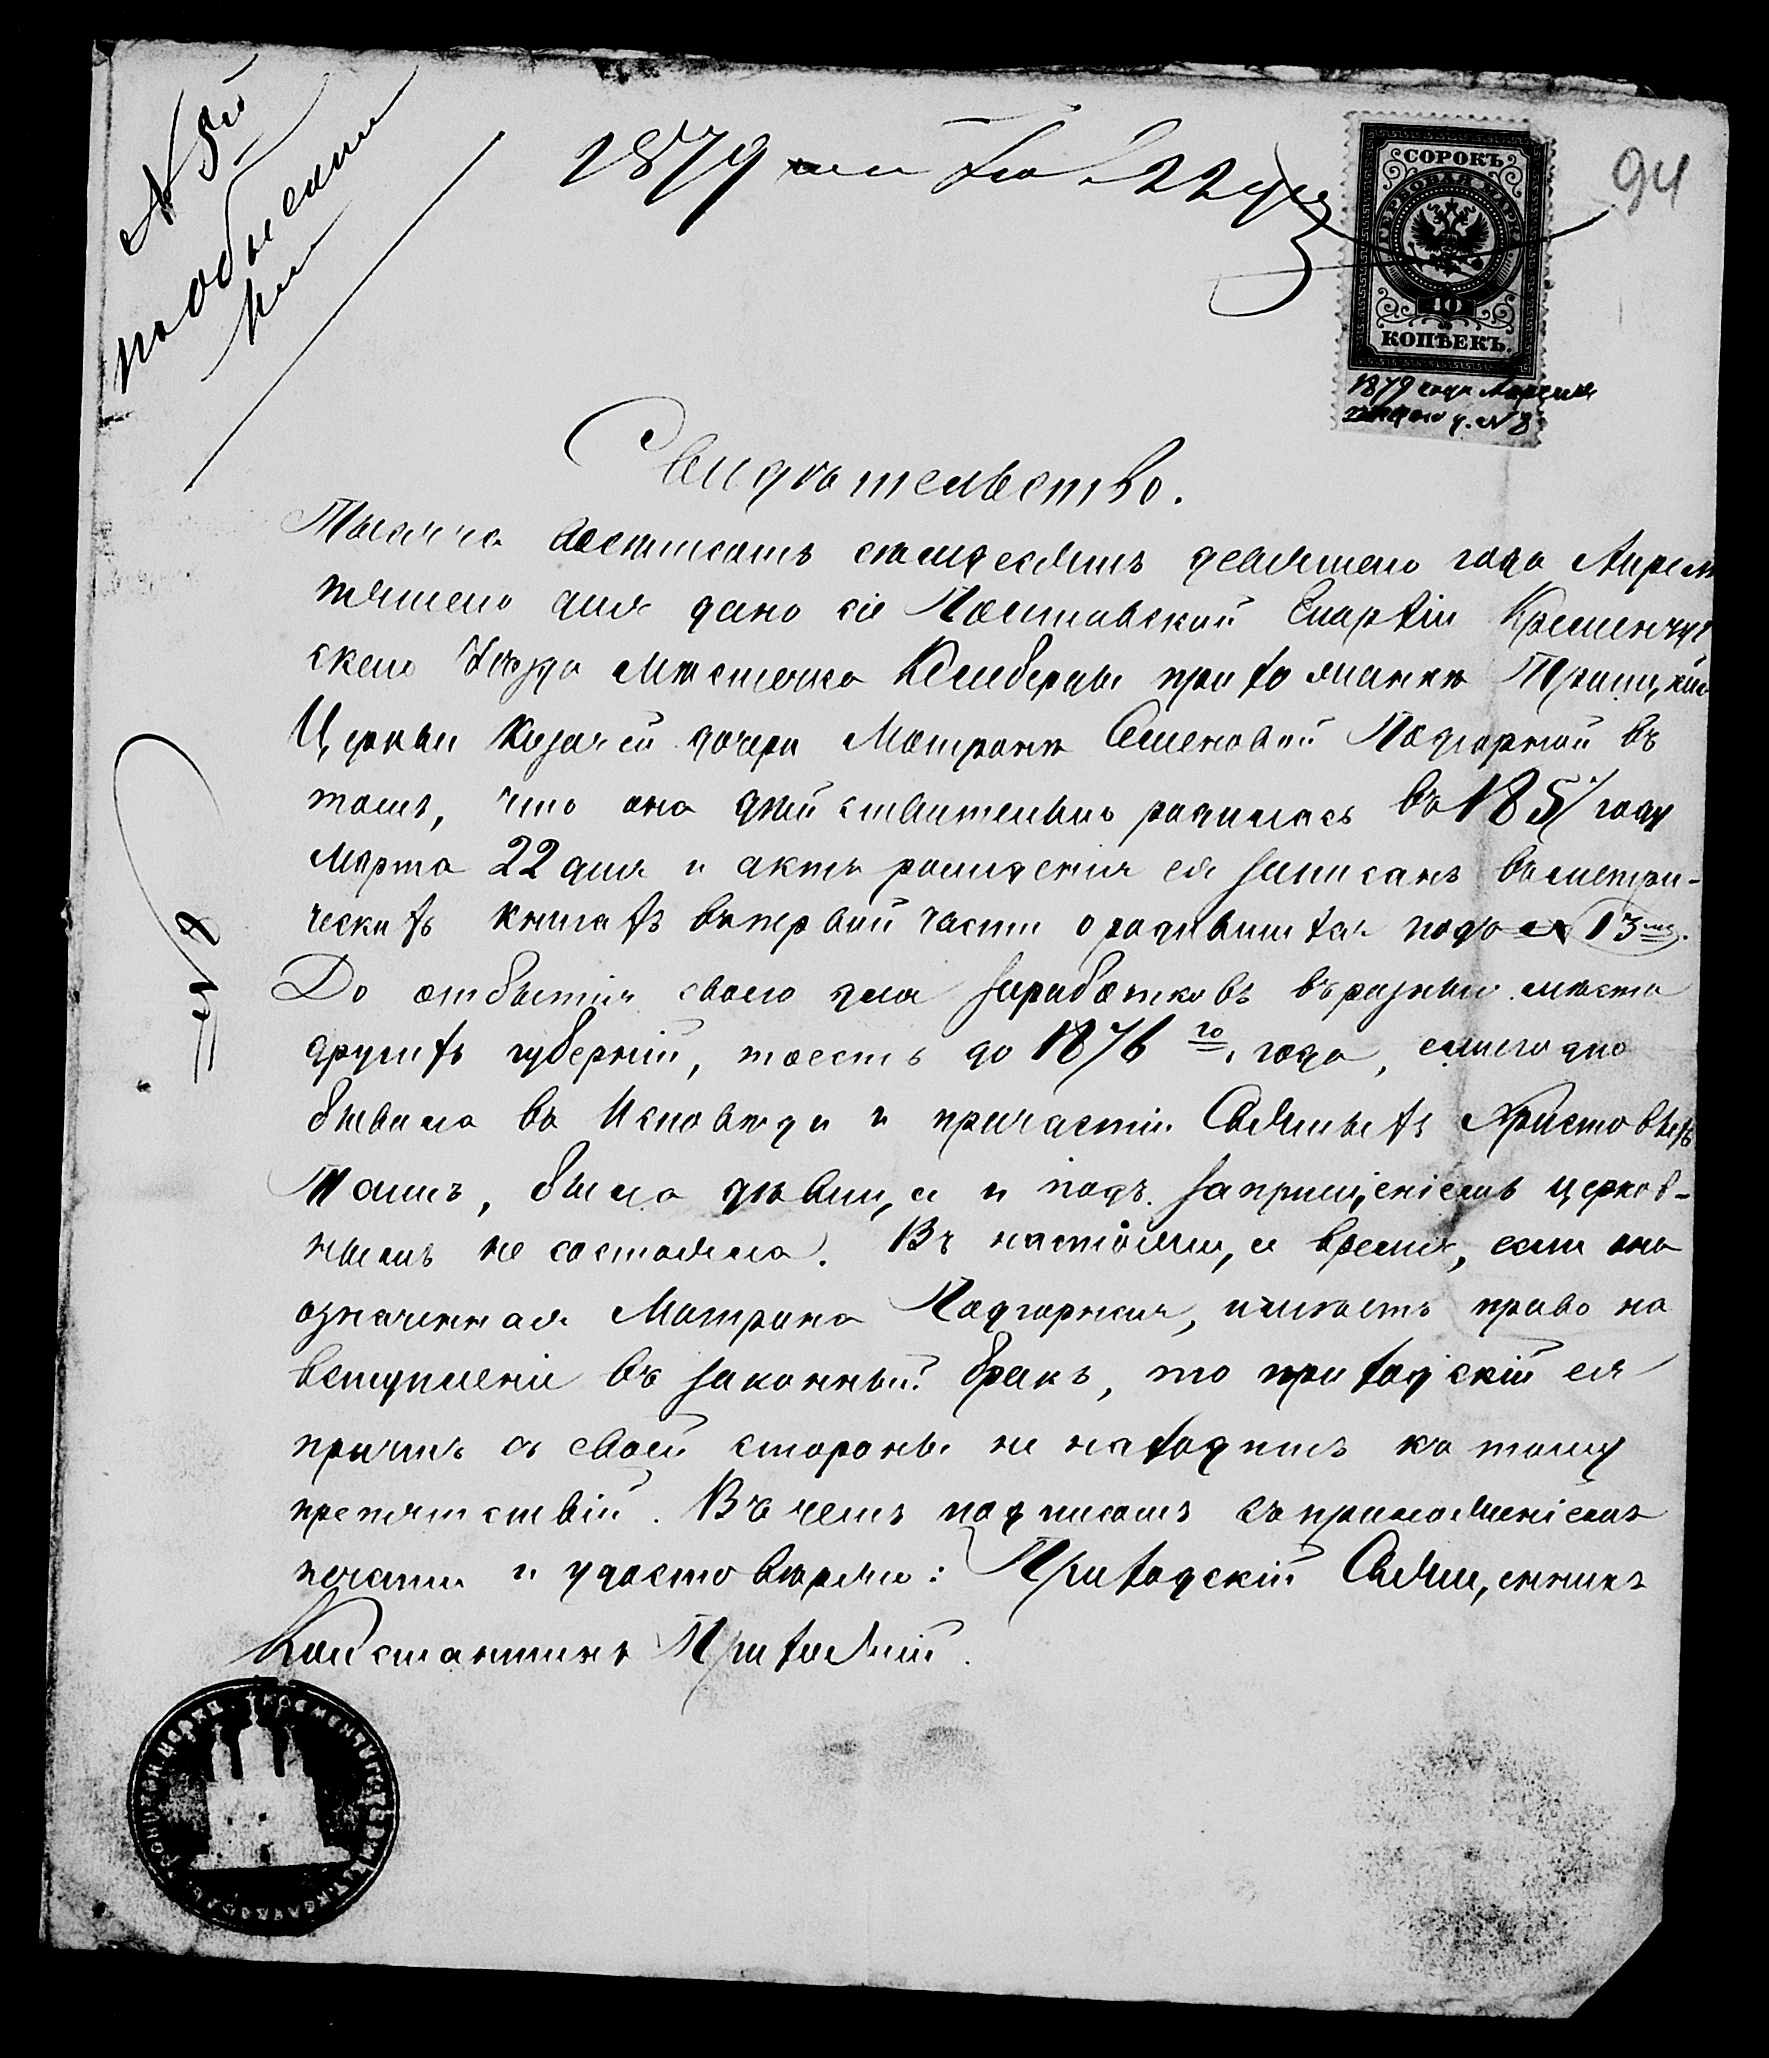 N 8й
по обыскамъ
94
СОРОКЪ
ГЕРБОВАЯ МАРКА
40
КОПѢЕКЪ.
1879 года Апрѣля
N 8
Свидѣтельство.
Тысяча восемьсотъ семьдесятъ девятаго года Апрѣля
пятаго дня дано сіе Полтавской Епархіи Кременчуг
скаго Уѣзда мѣстечка Келеберды прихожанкѣ Троицкой
Церкви козачей дочери Матронѣ Семеновой Подгорной въ
томъ, что она дѣйствительно родилась въ 1857 году
Марта 22 дня и актъ рожденія ея записанъ въ метри-
ческихъ книгахъ въ первой части о родившихся подъ N 13мъ.
До отбытія своего для заработковъ въ разные мѣста
другихъ губерній, тоесть до 1876го года, ежегодно
бывала въ Исповѣди и причастіи Святыхъ Христовыхъ
Таинъ, была дѣвица и подъ запрещеніемъ церков-
нымъ не состояла. Въ настоящее время, если она
означенная Матрона Подгорная, имѣетъ право на
вступленіе въ законный бракъ, то приходскій ея
причтъ съ своей стороны не находитъ къ тому
препятствій. Въ чемъ подписомъ съ приложеніемъ
печати и удостовѣряю: Приходскій Священникъ
Константинъ Прихожій.